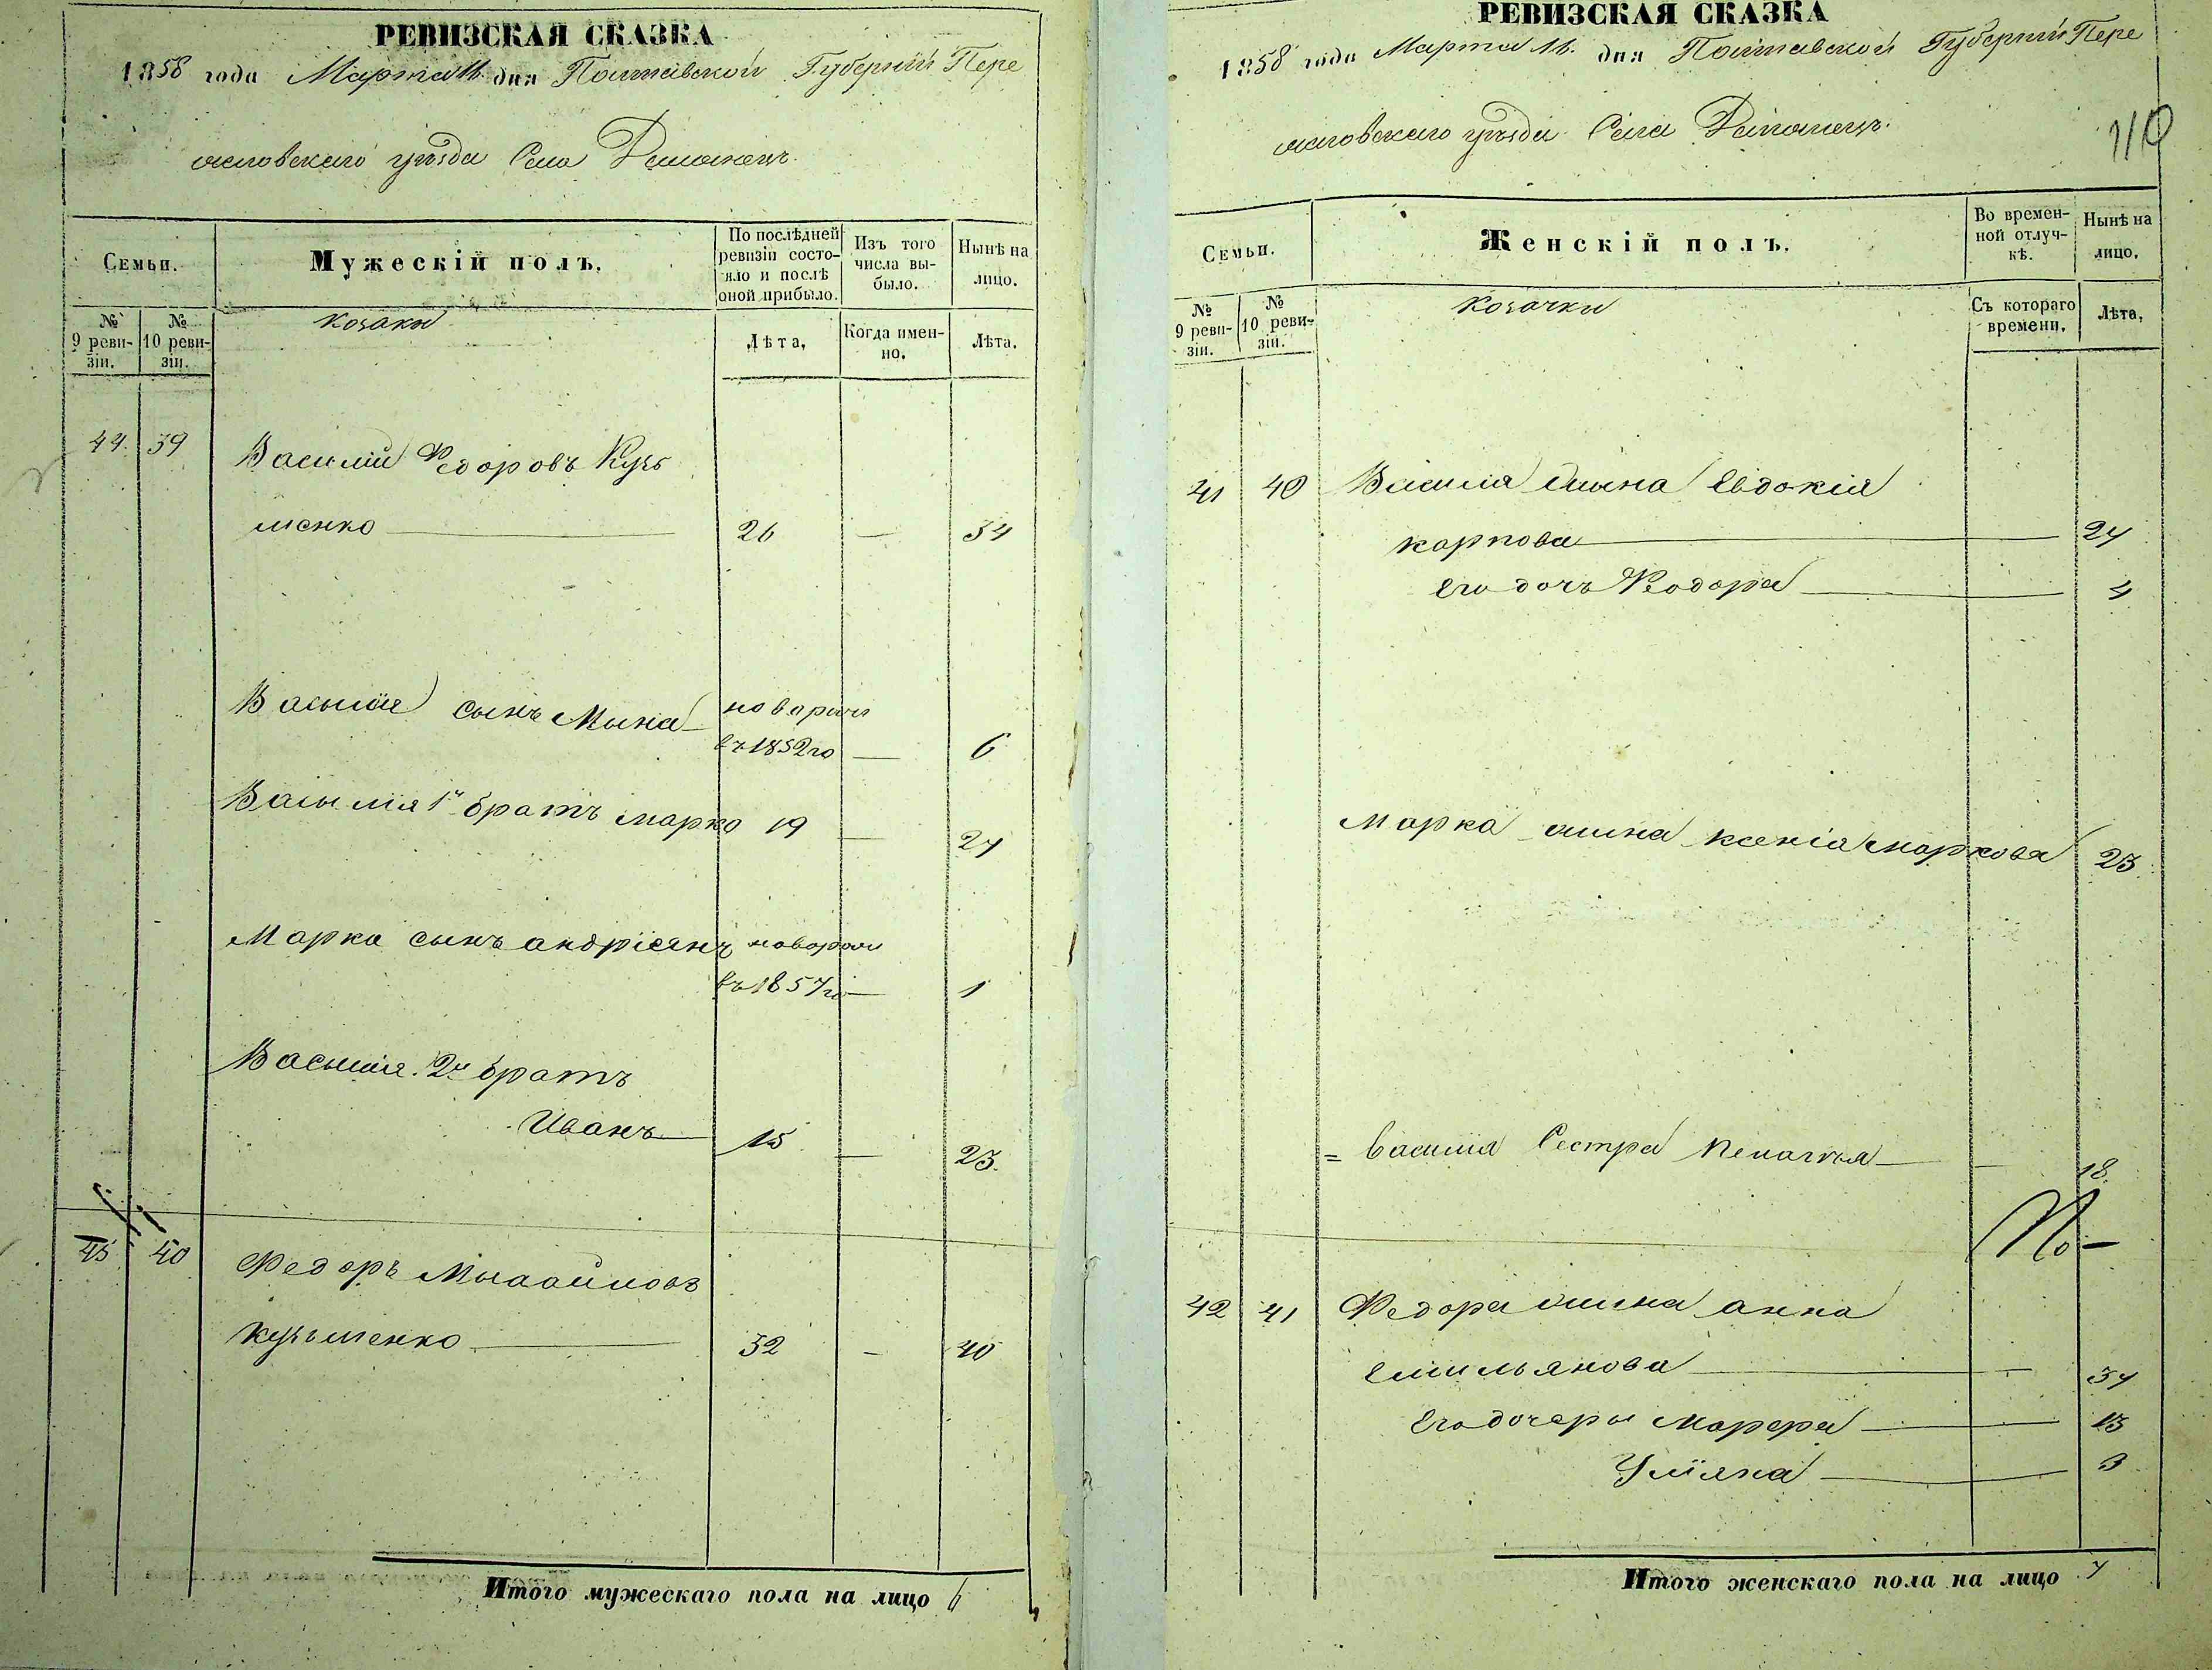 РЕВИЗСКАЯ СКАЗКА
1858 года Марта 11. дня Полтавской Губерніи Пере
яславскаго уѣзда Села
Семьи.
Мужескій полъ.
По послѣдней ревизіи состояло и послѣ оной прибыло.
Изъ того числа выбыло.
Нынѣ на лицо.
№ 9 ревизіи.
№ 10 ревизіи.
козаки
Лѣта.
Когда именно.
Лѣта.
44. 39 Василий Федоровъ Кузь
менко 26 — 34
Василия сынъ Мына новорож
въ 1852го — 6
Василия 1й братъ марко 19 — 27
Марка сынъ андріянъ новорож
въ 1857го — 1
Василия 2й братъ
Иванъ 15 — 23.
45 40 Федоръ Михайловъ
кузьменко 32 — 40
Итого мужескаго пола на лицо 6
РЕВИЗСКАЯ СКАЗКА
1858 года Марта 11. дня Полтавской Губерніи Пере
яславскаго уѣзда Села
110
Семьи.
Женскій полъ.
Во временной отлучкѣ.
Нынѣ на лицо.
№ 9 ревизіи.
№ 10 ревизіи.
козачки
Съ котораго времени.
Лѣта.
41 40 Василія жена Евдокія
карпова — 24
Его дочь Феодора — 4
Марка жена ксенія маркова 23
= Василия Сестра Пелагея — 18.
42 41 Федора жена анна
Емильянова — 37
Его дочеры Марфа — 13
Уліяна — 3
Итого женскаго пола на лицо 7